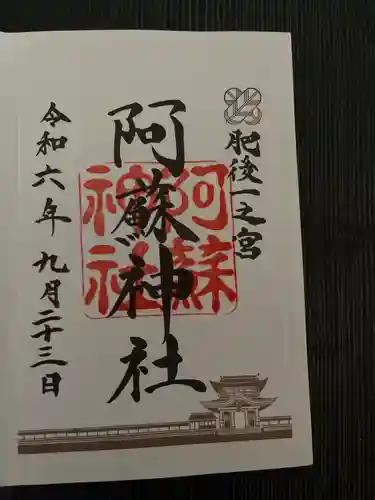 肥後一之宮
阿蘇神社
阿蘇
神社
令和六年九月二十三日